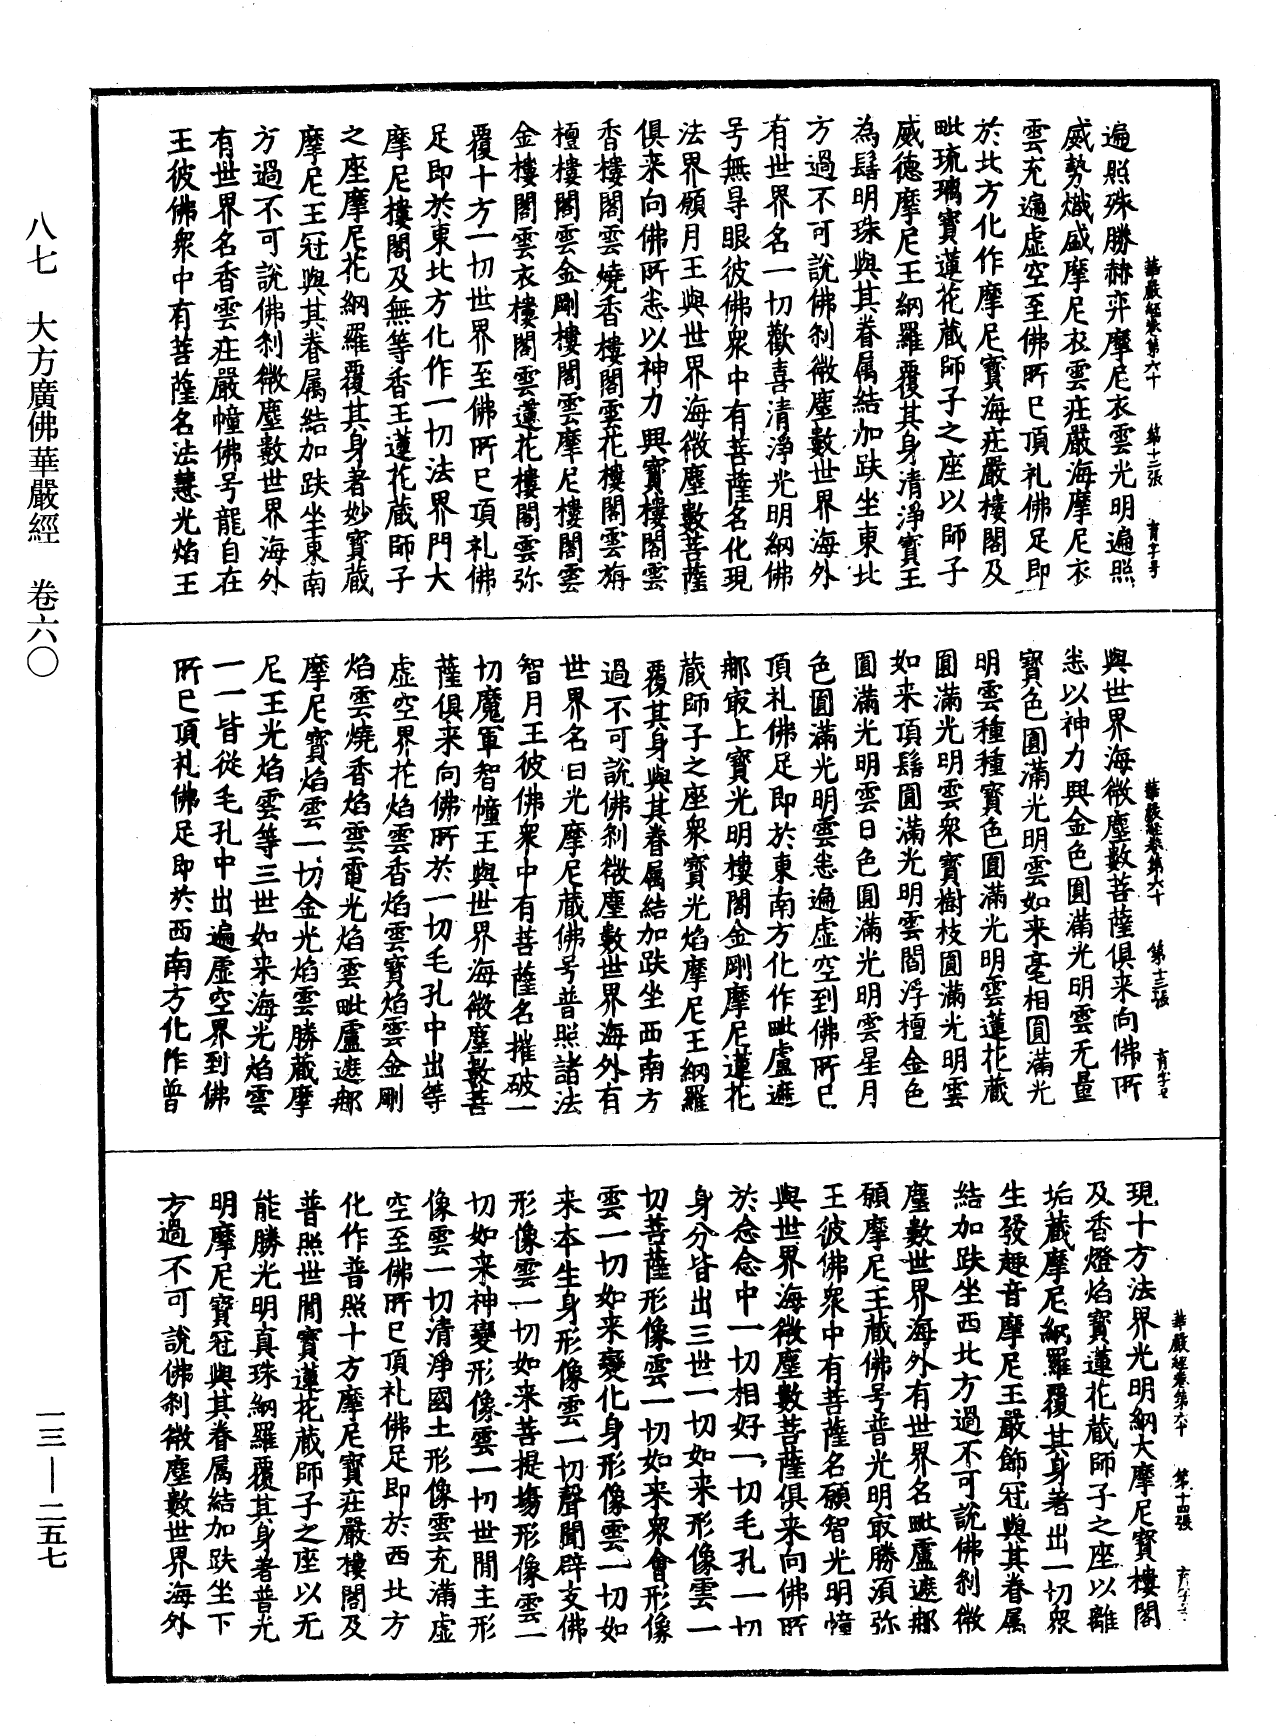 八七　大方廣佛華嚴經　卷六〇
華嚴經卷第六十　第十二張　育字号
遍照殊勝赫弈摩尼衣雲光明遍照
威勢熾盛摩尼衣雲莊嚴海摩尼衣
雲充遍虛空至佛所已頂礼佛足即
於北方化作摩尼寶海莊嚴樓閣及
毗琉璃寶蓮花藏師子之座以師子
威德摩尼王網羅覆其身清淨寶王
為髻明珠與其眷属結加趺坐東北
方過不可說佛剎微塵數世界海外
有世界名一切歡喜清淨光明網佛
号無㝵眼彼佛眾中有菩薩名化現
法界願月王與世界海微塵數菩薩
俱来向佛所悉以神力興寶樓閣雲
香樓閣雲燒香樓閣雲花樓閣雲栴
檀樓閣雲金剛樓閣雲摩尼樓閣雲
金樓閣雲衣樓閣雲蓮花樓閣雲弥
覆十方一切世界至佛所已頂礼佛
足即於東北方化作一切法界門大
摩尼樓閣及無等香王蓮花藏師子
之座摩尼花網羅覆其身著妙寶藏
摩尼王冠與其眷属結加趺坐東南
方過不可說佛剎微塵數世界海外
有世界名香雲莊嚴幢佛号龍自在
王彼佛眾中有菩薩名法慧光焰王
華嚴經卷第六十　第十三張　育字号
與世界海微塵數菩薩俱来向佛所
悉以神力興金色圓滿光明雲无量
寶色圓滿光明雲如来毫相圓滿光
明雲種種寶色圓滿光明雲蓮花藏
圓滿光明雲眾寶樹枝圓滿光明雲
如来頂髻圓滿光明雲閻浮檀金色
圓滿光明雲日色圓滿光明雲星月
色圓滿光明雲悉遍虛空到佛所已
頂礼佛足即於東南方化作毗盧遮
那㝡上寶光明樓閣金剛摩尼蓮花
藏師子之座眾寶光焰摩尼王網羅
覆其身與其眷属結加趺坐西南方
過不可說佛剎微塵數世界海外有
世界名日光摩尼藏佛号普照諸法
智月王彼佛眾中有菩薩名摧破一
切魔軍智幢王與世界海微塵數菩
薩俱来向佛所於一切毛孔中出等
虛空界花焰雲香焰雲寶焰雲金剛
焰雲燒香焰雲電光焰雲毗盧遮那
摩尼寶焰雲一切金光焰雲勝藏摩
尼王光焰雲等三世如来海光焰雲
一一皆從毛孔中出遍虛空界到佛
所已頂礼佛足即於西南方化作普
華嚴經卷第六十　第十四張　育字号
現十方法界光明網大摩尼寶樓閣
及香燈焰寶蓮花藏師子之座以離
垢藏摩尼網羅覆其身著出一切眾
生發趣音摩尼王嚴飾冠與其眷属
結加趺坐西北方過不可說佛剎微
塵數世界海外有世界名毗盧遮那
願摩尼王藏佛号普光明㝡勝須弥
王彼佛眾中有菩薩名願智光明幢
與世界海微塵數菩薩俱来向佛所
於念念中一切相好一切毛孔一切
身分皆出三世一切如来形像雲一
切菩薩形像雲一切如来眾會形像
雲一切如来變化身形像雲一切如
来本生身形像雲一切聲聞辟支佛
形像雲一切如来菩提場形像雲一
切如来神變形像雲一切世閒主形
像雲一切清淨國土形像雲充滿虛
空至佛所已頂礼佛足即於西北方
化作普照十方摩尼寶莊嚴樓閣及
普照世閒寶蓮花藏師子之座以无
能勝光明真珠網羅覆其身著普光
明摩尼寶冠與其眷属結加趺坐下
方過不可說佛剎微塵數世界海外
一三—二五七